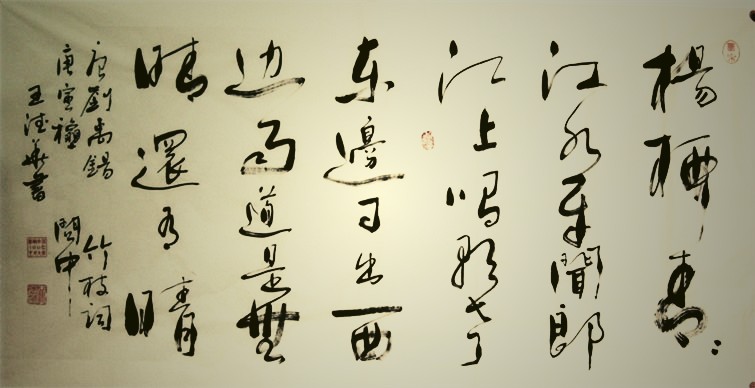 楊柳青〻
江水平聞郎
江上唱歌声
東邊日出西
边雨道是無
晴還有晴
唐劉禹錫 竹枝詞
庚寅穐 閬中
王 華書